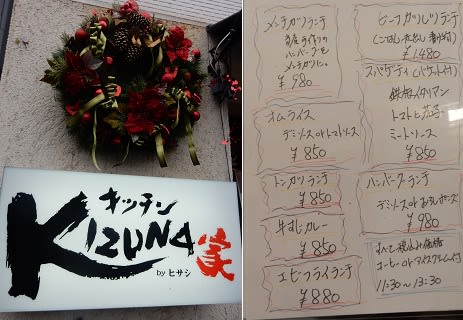 キッチン
KIZUNA家
by ヒサシ
メンチカツランチ
ハンバーグを
メンチカツに。
¥980
オムライス
デミソース or トマトソース
¥850
トンカツランチ
¥850
牛すじカレー
¥850
エビフライランチ
¥880
ビーフカツレツランチ
¥1,480
スパゲティ(バケット付)
鉄板イタリアン
トマトと茄子
ミートソース
¥850
ハンバーグランチ
デミソース or おろしポンズ
¥980
すべて税込み価格
コーヒー or アイスクリーム付
11:30～13:30